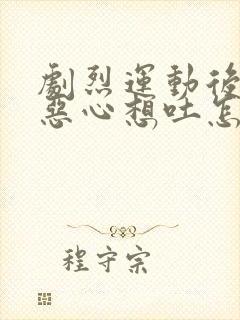 劇烈運動後
惡心想吐怎
程守宗